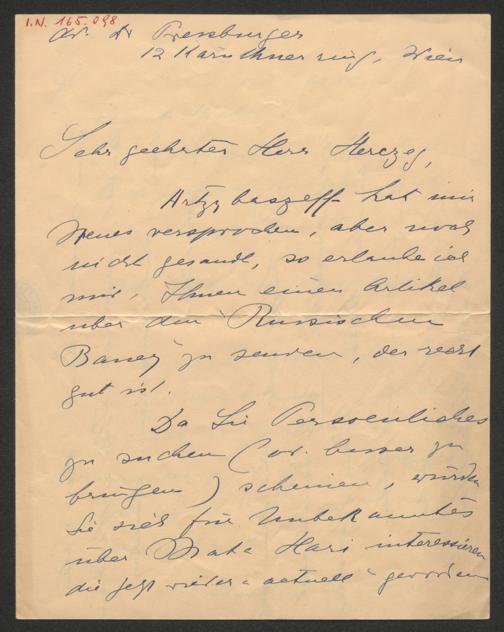 I.N. 165.098
Dr. Pressburger
12 Kärnthner ring, Wien
Sehr geehrter Herr Herczeg,
Artzybaszeff hat mir
Neues versprochen, aber noch
nicht gesandt, so erlaube ich
mir, Ihnen einen Artikel
über den "Russischen
Bauer" zu senden, der recht
gut ist.
Da Sie Persoenliches
zu suchen (od. besser zu
bringen) scheinen, würden
Sie sich für Unbekanntes
über Mata Hari interessieren
die jetzt wieder "aktuell" geworden